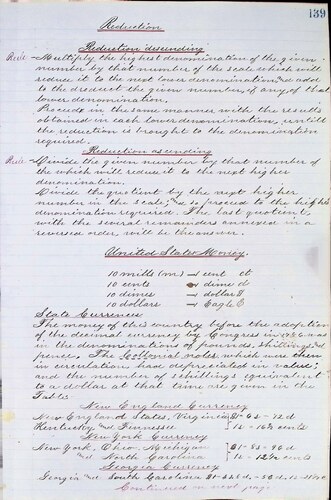 139
Reduction
Reduction descending
Rule - Multiply the highest denomination of the given
number by that number of the scale which will
reduce it to the next lower denomination, and add
to the product the given number, if any, of that
lower denomination.
Proceed in the same manner with the results
obtained in each lower denomination, until
the reduction is brought to the denomination
required.
Reduction ascending
Rule - Divide the given number by that number of
the which will reduce it to the next higher
denomination.
Divide the quotient by the next higher
number in the scale; and so proceed to the highest
denomination required. The last quotient,
with the several remainders annexed in a
reversed order, will be the answer.
United States Money.
10 mills (m) - cent ct
10 cents dime d
10 dimes - dollar $
10 dollars - Eagle E
State Currencies
The money of this country before the adoption
of the decimal currency by Congress in was
in the denomination of pounds, shillings and
pence. The Colonial notes which were then
in circulation had depreciated in value;
and the number of shillings equivalent
to a dollar at that time are given in the
Table
New England Currency
New England States, Virginia $1 - 6s - 72 d
Kentucky, and Tennessee 1s - 16⅔ cents
New York Currency
New York, Ohio, Michigan $1 - 8s - 96 d
and North Carolina 1s - 12½ cents
Georgia Currency
Georgia and South Carolina
Continued on next page